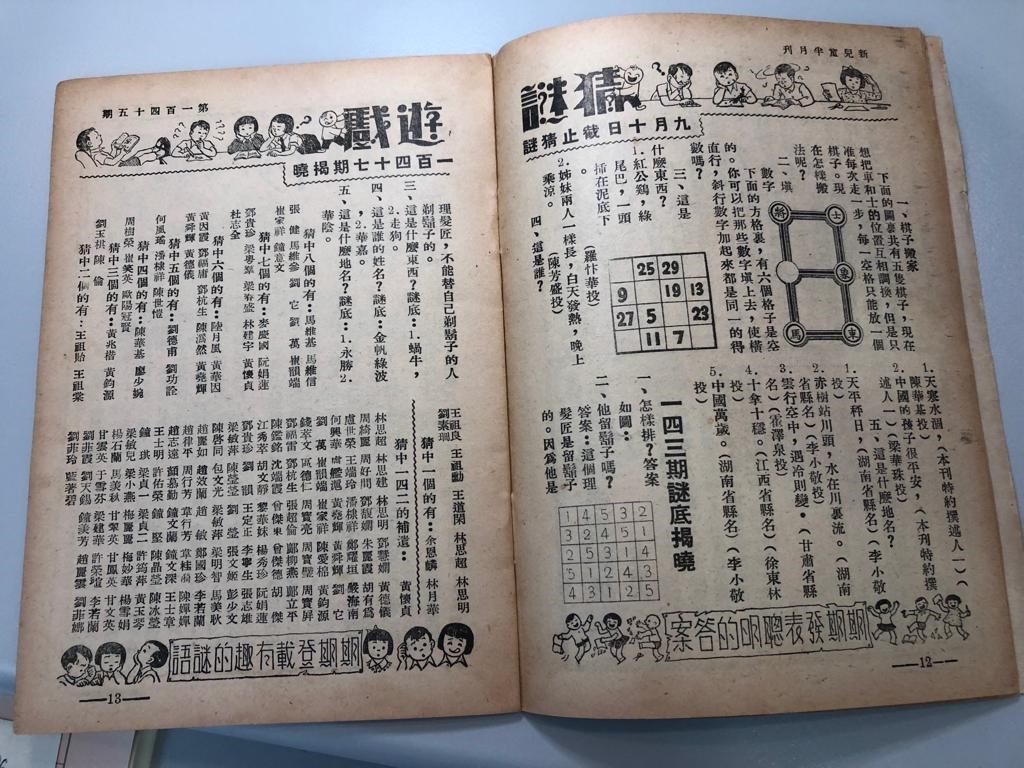 新兒童半月刊
猜謎
九月十日截止猜謎
一、棋子搬家
下面的圖裏共有五隻棋子，現在
想把車和士的位置互相調換，但是只
准每次走一步，每一空格只能放一個
棋子。現
在怎樣搬
法呢？
將
士
象
馬
車
二、填
數字
下面的方格裏，有六個格子是空
的。你可以把那些數字填上去，使橫
直行，斜行數字加起來都是同一的得
數嗎？
25 29
9 19 13
27 5 23
11 7
三、這是
什麼東西？
1.紅公鷄，綠
尾巴，一頭
插在泥底下
。
（羅忭華投）
2.姊妹兩人一樣長，白天發熱，晚上
乘涼。
（陳芳盛投）
四、這是誰？
1.天寒水涸，（本刊特約撰述人一）（
陳華基投）
2.中國的孩子很平安，（本刊特約撰
述人一）（梁華珠投）
五、這是什麼地名？
1.天平秤日，（湖南省縣名）（李小敬
投）
2.赤樹站川頭，水在川裏流。（湖南
省縣名）（李小敬投）
3.雲行空中，遇冷則變。（甘肅省縣
名）（崔澤泉投）
4.十拿十穩。（江西省縣名）（徐東林
投）
5.中國萬歲。（湖南省縣名）（李小敬
投）
一四三期謎底揭曉
一、怎樣排？答案
如圖：
二、他留鬍子嗎？
答案：這個理
髮匠是留鬍子
的。因為他是
1 4 5 3 2
3 2 4 5 1
2 5 3 1 4
5 1 2 4 3
4 3 1 2 5
期期發表聰明的答案
12
第一百四十五期
遊戲
一百四十七期揭曉
理髮匠，不能替自己剃鬍子的人
剃鬍子的。
三、這是什麼東西？謎底：1.蝸牛，
2.走狗。
四、這是誰的姓名？謎底：金帆綠波
，2.華嘉。
五、這是什麼地名？謎底：1.永勝2.
華陰。
猜中八個的有：馬維基 馬維信
張健 馬維參 劉它 劉萬 崔韻端
崔家祥 鐘意文
猜中七個的有：麥慶國 阮娟蓮
鄧貴珍 梁粵翠 梁春盛 林建宇 黃懷貞
杜志全
猜中六個的有：陸月風 黃華因
黃因霞 鄧福庸 鄧杭生 陳潙然 黃堯輝
黃舜輝 黃德儀
猜中五個的有：劉德甫 劉功詮
何風瑤 潘棣祥 陳世愷
猜中四個的有：陳華基 廖少婉
周樹榮 崔笑英 歐陽冠賢
猜中三個的有：黃兆楷 黃鈞源
劉玉祺 陳一倫
猜中二個的有：王祖貽 王祖棠
王祖良 王祖勳 王道閎 林思超 林思明
劉素瓊
猜中一個的有：余恩鱗 林月華
猜中一四二的補遺：
黃懷貞
林思超 林思建 林思明 鄧慧嫻 黃德儀
周綺麗 周好問 鄧馥嫻 朱麗霞 胡有為
盧世榮 王端玲 潘棣祥 鄭耀垣 嚴海南
何興華 盧鑑滬 黃堯輝 黃舜輝 劉它
劉萬 崔韻端 崔家祥 陳愛棉 黃鈞源
錢萃文 區德仁 周寶亮 周寶璧 周寶屏
鄧福雷 鄧杭生 張超倫 鄺柳燕 鄺立平
陳鑑銘 沈端霞 曾傑東 曾傑德 胡傑
江秀萃 胡文靜 黎華妹 楊秀珍 阮娟蓮
鄧貴珍 劉韻 王定正 李寧生 張志雄
梁敏萍 陳瑩瑩 劉瑩 張文姬 彭少文
陳啓同 包文光 梁敏萍 梁明智 馬美耿
趙麗如 趙效蘭 趙敏 鄭國珍 李若蘭
趙律平 周行芳 章行芳 章桂 陳嬋嬋
趙志遠 顏慕勤 鐘文蘭 鐘文深 王士章
王士明 許佑榮 鐘堅 陳晶瑩 陳冰瑩
鐘琪 梁貞一 梁貞二 許筠萍 黃玉琴
梁敏兒 梁小燕 梅麗霞 梅妙華 楊雪娟
楊石蘭 馬翠秋 甘翠英 甘鳳英 甘文英
甘雲英 于雪芬 梁建華 許榮塏 李若蘭
劉菲霞 劉天錫 鐘美芳 趙麗雲 劉菲娜
劉菲玲 藍著碧
期期登載有趣的謎語
13